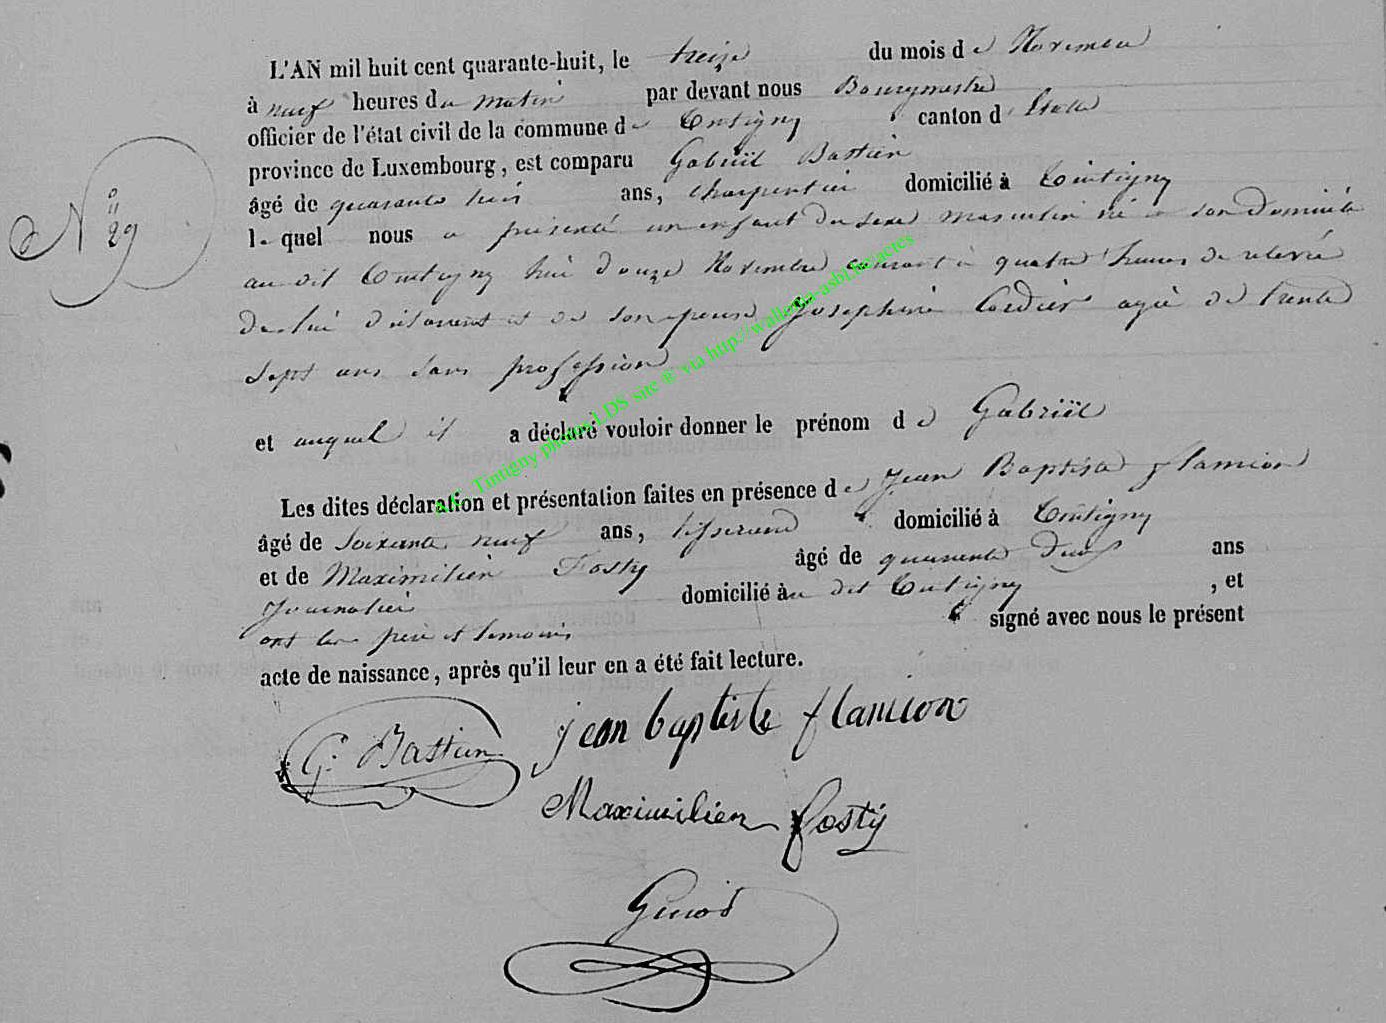 L'AN mil huit cent quarante-huit, le treize du mois de Novembre
à neuf heures du matin par devant nous Bourgmestre
officier de l'état civil de la commune de Tintigny canton d'Etalle
province de Luxembourg, est comparu Gabriël Bastien
âgé de quarante trois ans, charpentier domicilié à Tintigny
N° 29
lequel nous a présenté un enfant du sexe masculin né à son domicile
au dit Tintigny hier douze Novembre courant à quatre heures de relevée
de lui déclarant et de son épouse Josephine Cordier agée de trente
sept ans sans profession
et auquel il a déclaré vouloir donner le prénom de Gabriël
Les dites déclaration et présentation faites en présence de Jean Baptiste flamion
âgé de soixante neuf ans, tisserand domicilié à Tintigny
et de Maximilien Fosty âgé de quarante deux ans
Journalier domicilié au dit Tintigny, et
ont les père et temoins signé avec nous le présent
acte de naissance, après qu'il leur en a été fait lecture.
G. Bastien jean baptiste flamion
Maximilien fosty
A.C. Tintigny photos LDS site ® via http://wallonia-asbl.be/actes